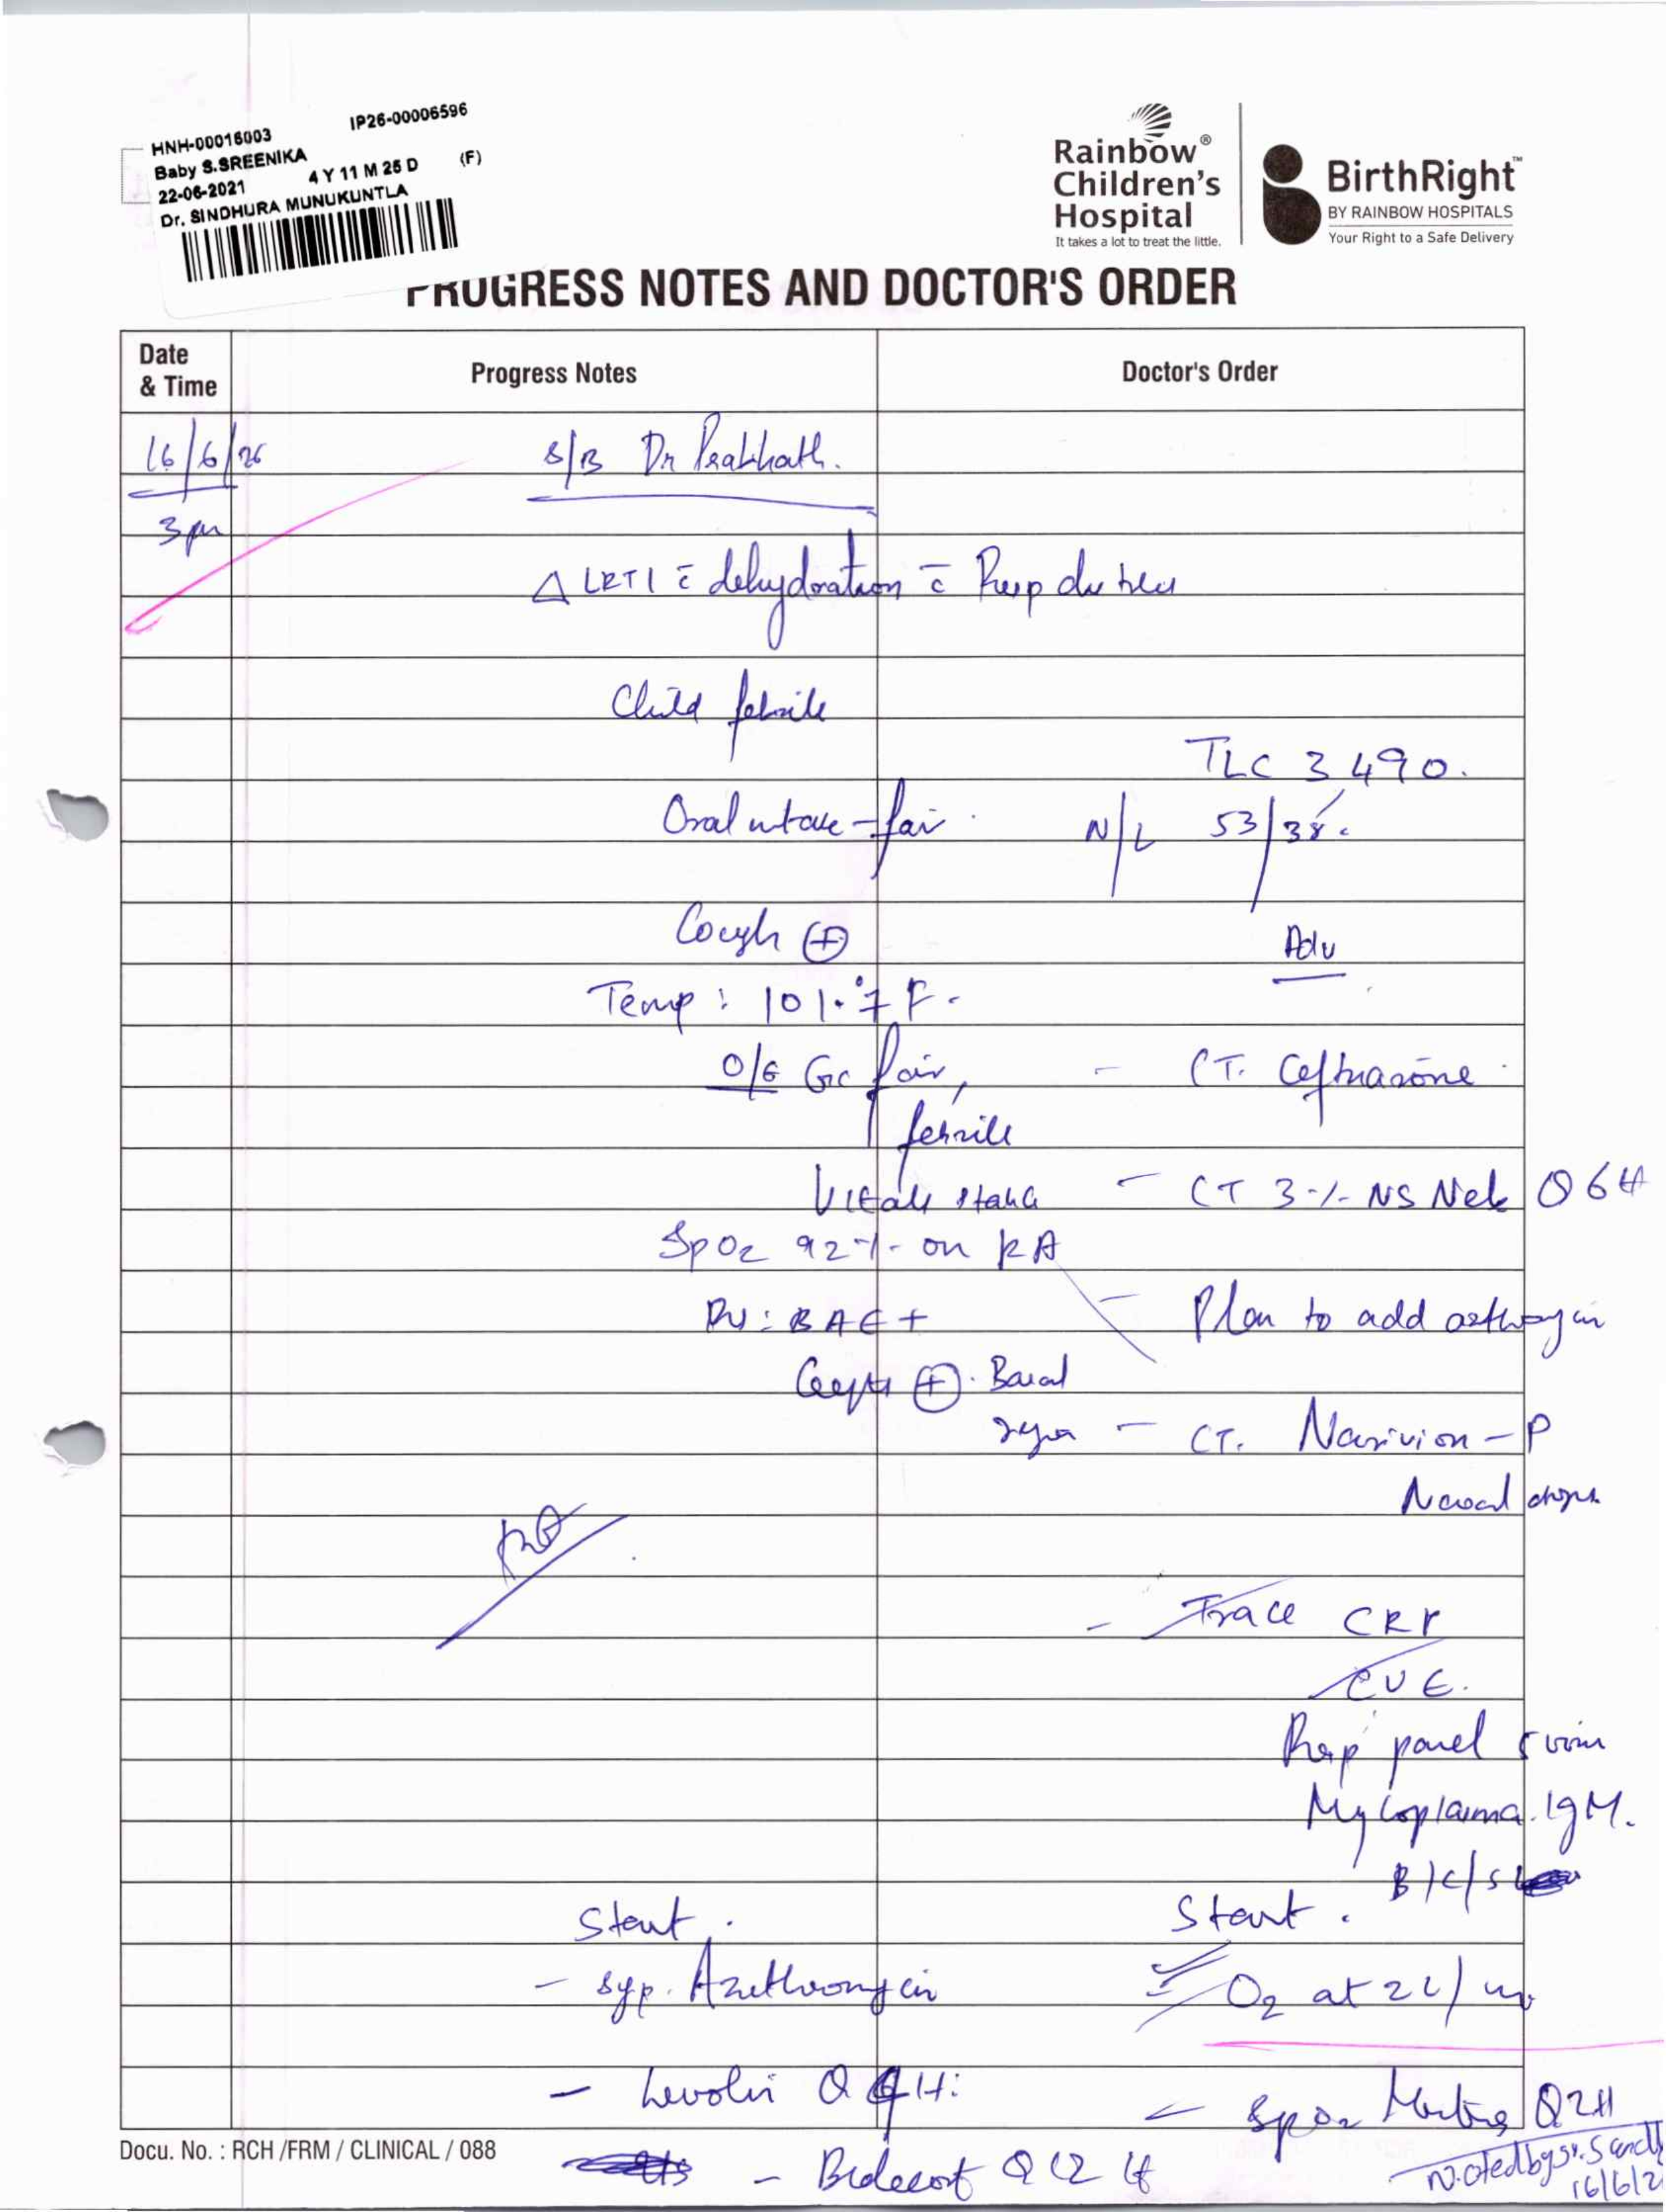 HNH-00016003 IP26-00006596
Baby S.SREENIKA
22-06-2021 4 Y 11 M 25 D (F)
Dr. SINDHURA MUNUKUNTLA
Rainbow®
Children's
Hospital
It takes a lot to treat the little.
BirthRight™
BY RAINBOW HOSPITALS
Your Right to a Safe Delivery
PROGRESS NOTES AND DOCTOR'S ORDER
Date & Time
Progress Notes
Doctor's Order
16/6/26 S/B Dr Prabhath.
3 pm
Δ LRTI c̄ dehydration c̄ Resp
Child febrile
TLC 3490.
Oral intake - fair. N/L 53/38.
Cough ⊕ Adv
Temp : 101.7°F.
O/E GC fair, - CT. Ceftriaxone
febrile
Vitals - CT 3% NS Neb Q6H
SpO2 92% on RA
BAE+ - Plan to add
⊕. Basal
- CT. Nasivion-P
Nasal drops
- Trace CRP
CUE.
Resp panel
Mycoplasma IgM.
B/C/S
Start. Start.
- Syp. Azithromycin O2 at 2L/
- Levolin Q H. - SpO2 Q2H
- Budecort Q12H
Noted by Sr.
16/6/2
Docu. No. : RCH /FRM / CLINICAL / 088